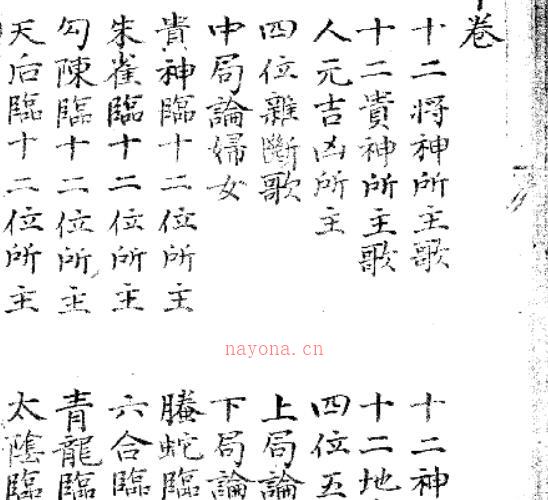 卷
十二将神所主歌 十二神
十二貴神所主歌 十二地
人元吉凶所主 四位五
四位雜斷歌 上局論
中局論婦女 下局論
貴神臨十二位所主 螣蛇臨
朱雀臨十二位所主 六合臨
勾陳臨十二位所主 青龍臨
天后臨十二位所主 太陰臨
nayona.cn